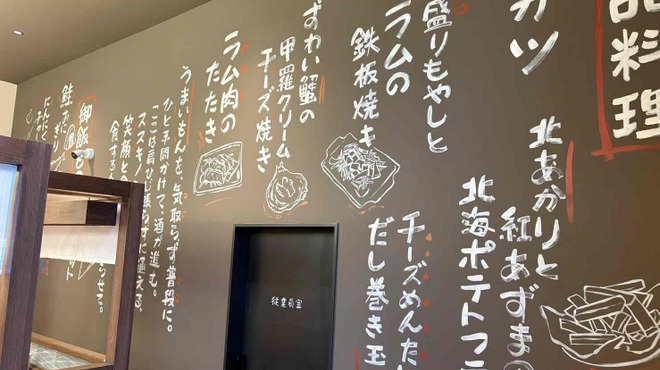 品料理
カツ
北あかりと
紅あずまの
北海ポテトフ
盛りもやしと
ラムの
鉄板焼き
チーズめんた
だし巻き玉
ずわい蟹の
甲羅クリーム
チーズ焼き
ラム肉の
たたき
うまいもんを、気取らず普段に。
ひと手間かけて、酒が進む。
ここは肩ひじ張らずに憩える、
ススキノ
笑顔と
食する
御飯
鮭
にんにく
らせて。
従業員室